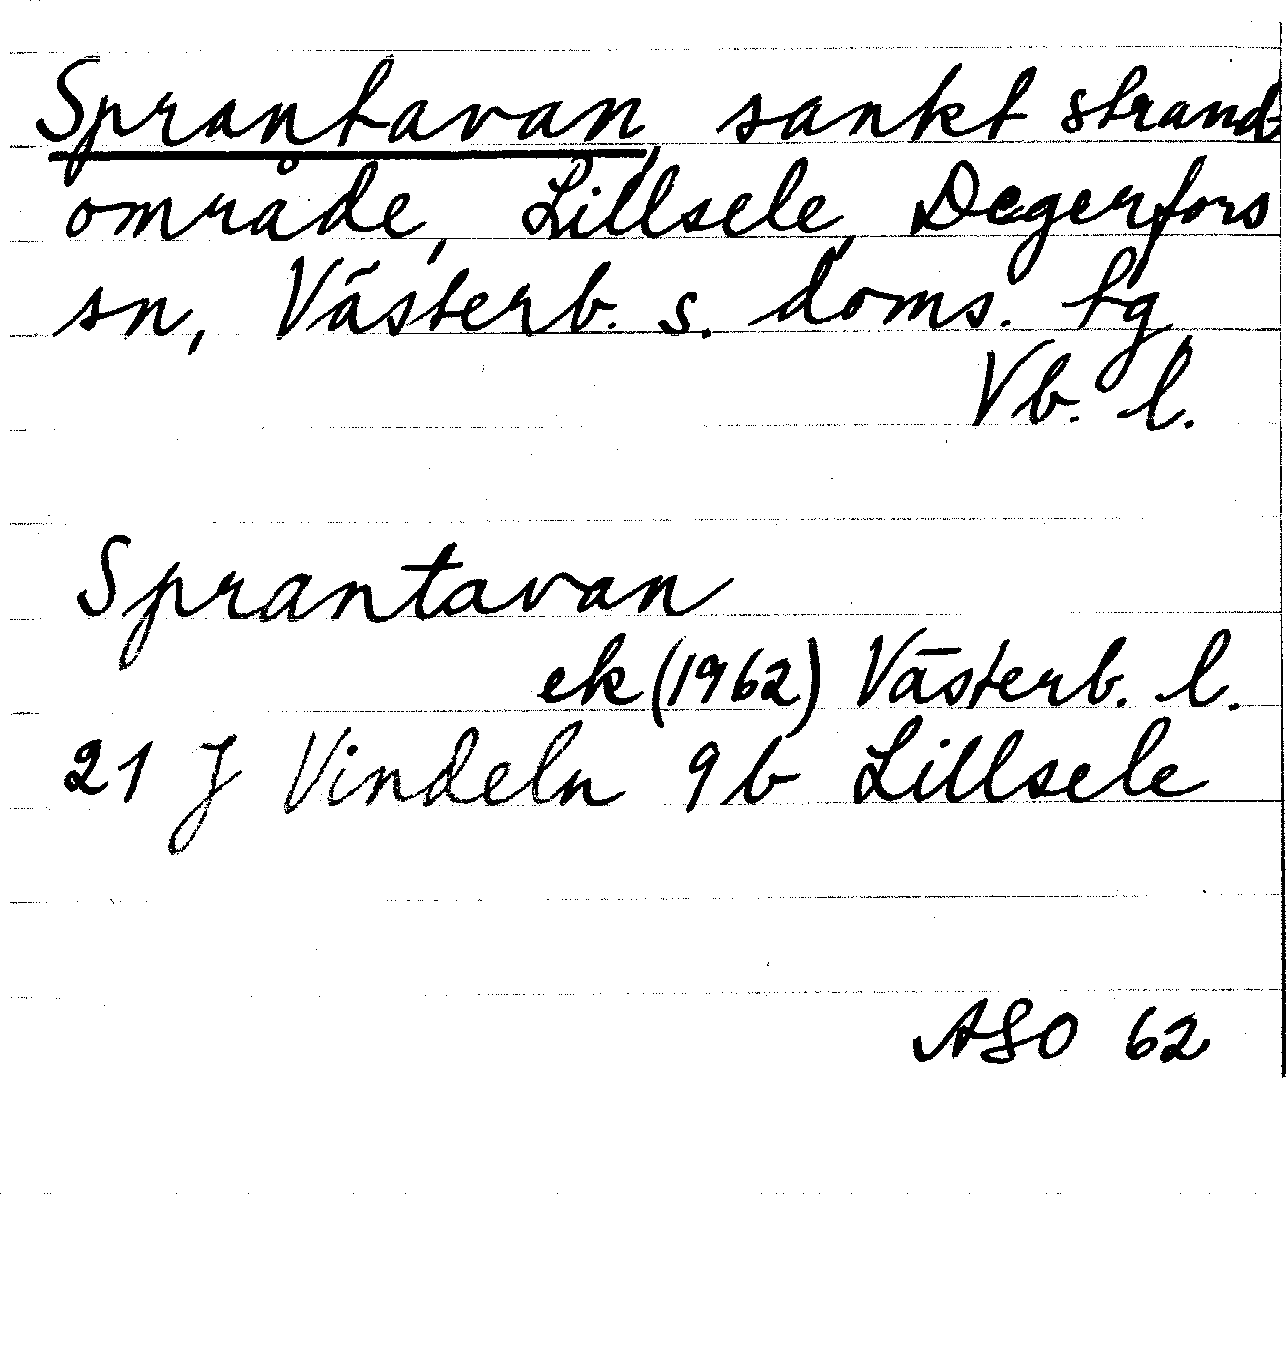 Sprantavan, sankt strand-
område, Lillsele, Degerfors
sn, Västerb. s. doms. tg
Vb. l.
Sprantavan
ek (1962) Västerb. l.
21 J Vindeln 9b Lillsele
ASO 62